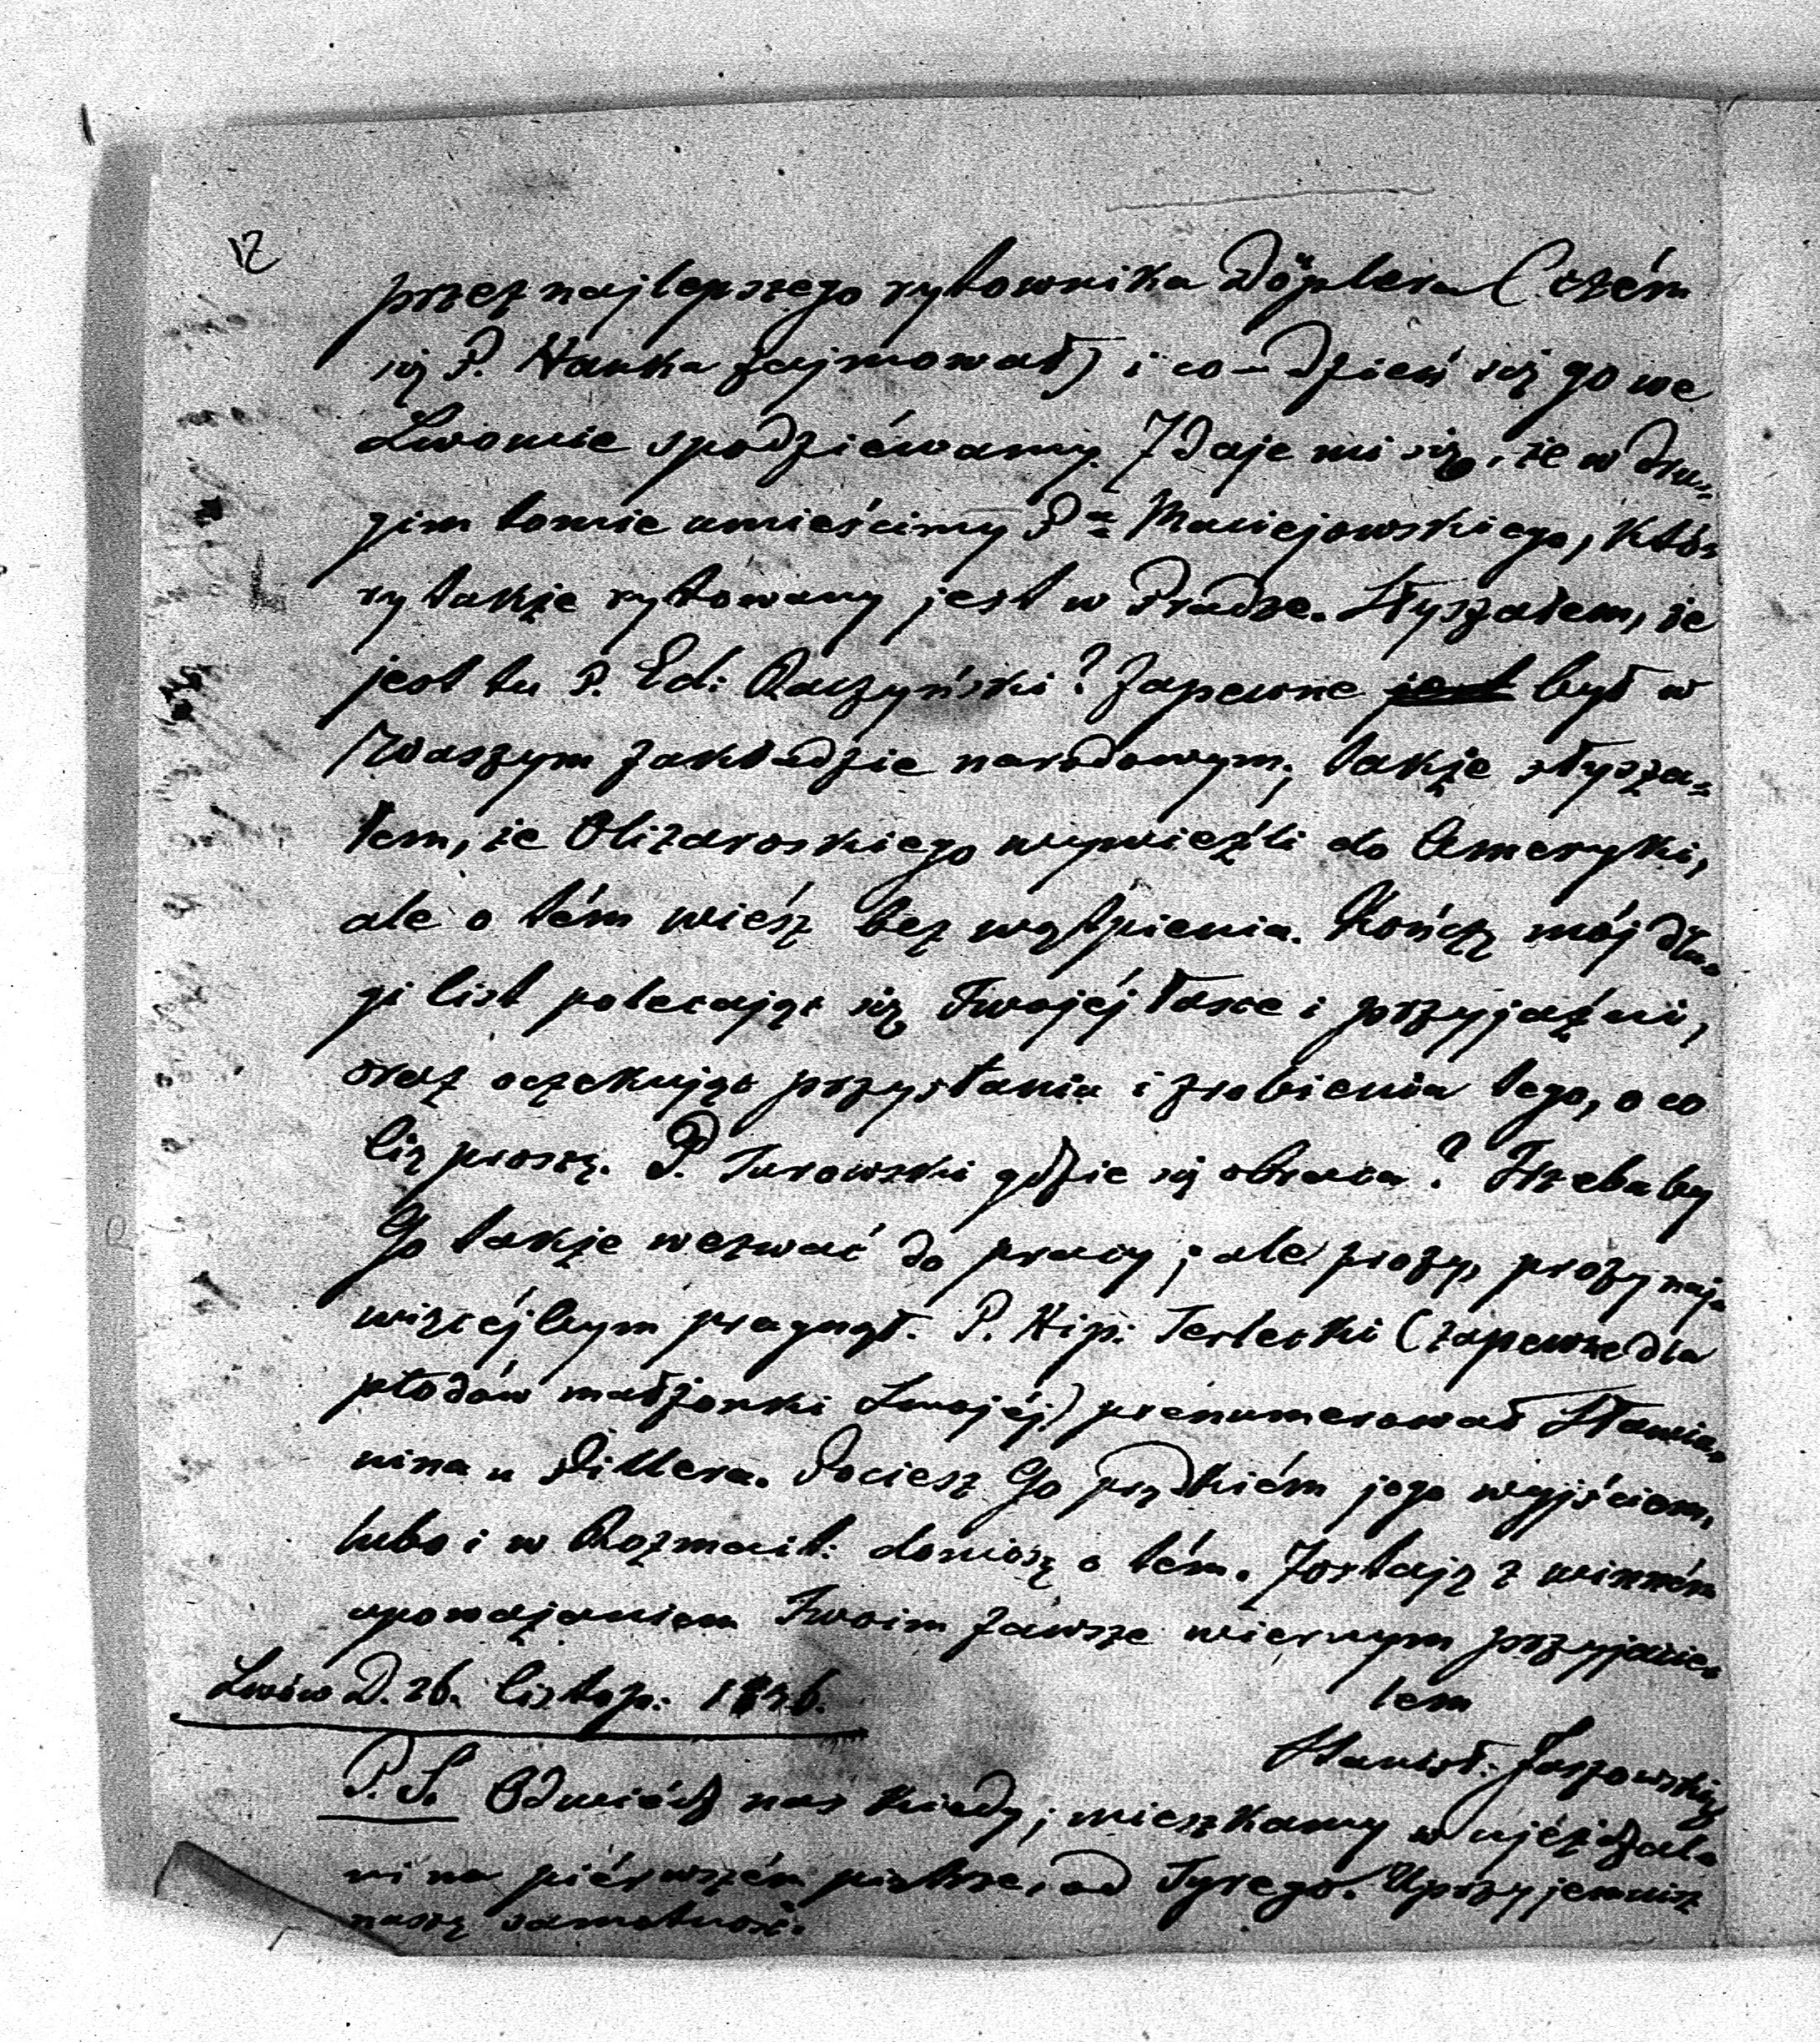 12
przez najlepszego rytownika Döplera (czém
się P. Hanka zajmował) i co-dzień się go we
Lwowie spodziéwamy. Zdaje mi się, że w dru=
gim tomie umieścimy Pa Maciejowskiego, któ=
ry także rytowany jest w Pradze. Słyszałem, że
jest tu P. Ed: Raczyński? Zapewne jest był w
Waszym zakładzie narodowym; także słysza=
łem, że Olizarowskiego wywieźli do Ameryki,
ale o tém wiész bez wątpienia. Kończę mój dłu=
gi list polecając się Twojéj łasce i przyjaźni,
oraz oczekując przysłania i zrobienia tego, o co
Cię proszę. P. Turowski gdzie się obraca? Trzebaby
Go także wezwać do pracy; ale prozy, prozy naj=
więcéj bym pragnął. P. Hip: Terlecki (zapewne dla
płodów małżonki Swojéj) prenumerował Sławia=
nina u Pillera. Pociesz Go prędkiém jego wyjściem,
lubo i w Rozmait: doniosę o tém. Zostaję z winném
upoważaniem Twoim zawsze wiernym przyjacie=
lem
Lwów D. 26. listop: 1836.
Stanisł: Jaszowski
P.S. Odwiédź nas kiedy; mieszkamy w ujéżdżal=
ni na piérwszém piętrze, od Tyłego. Uprzyjemnisz
naszę samotność.